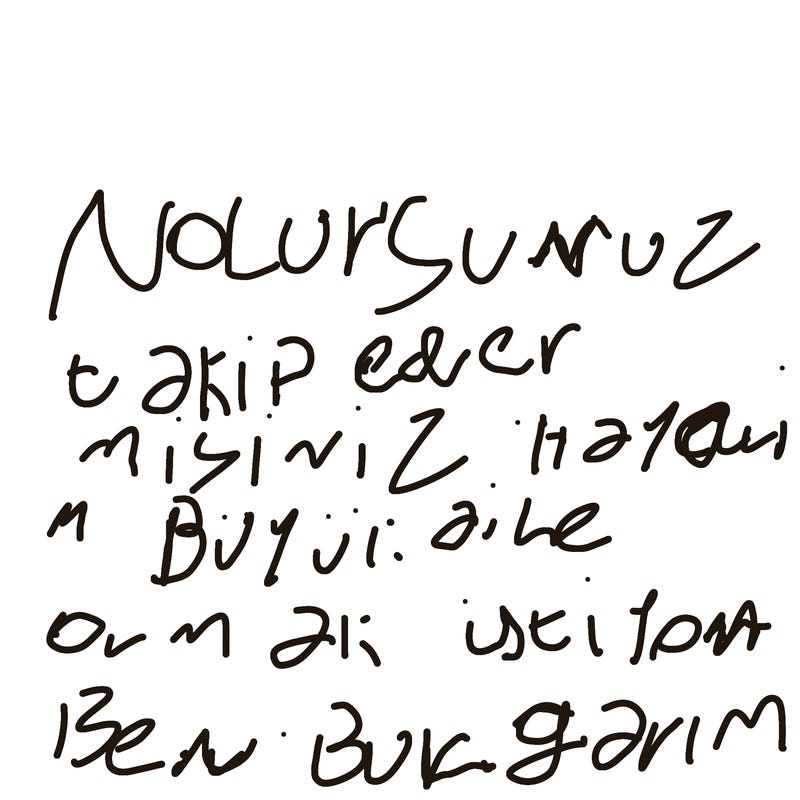 NOLURSUNUZ
takip eder
misiniz Hayatı
m Büyük aile
olmak istiyom
Ben Bulgarım